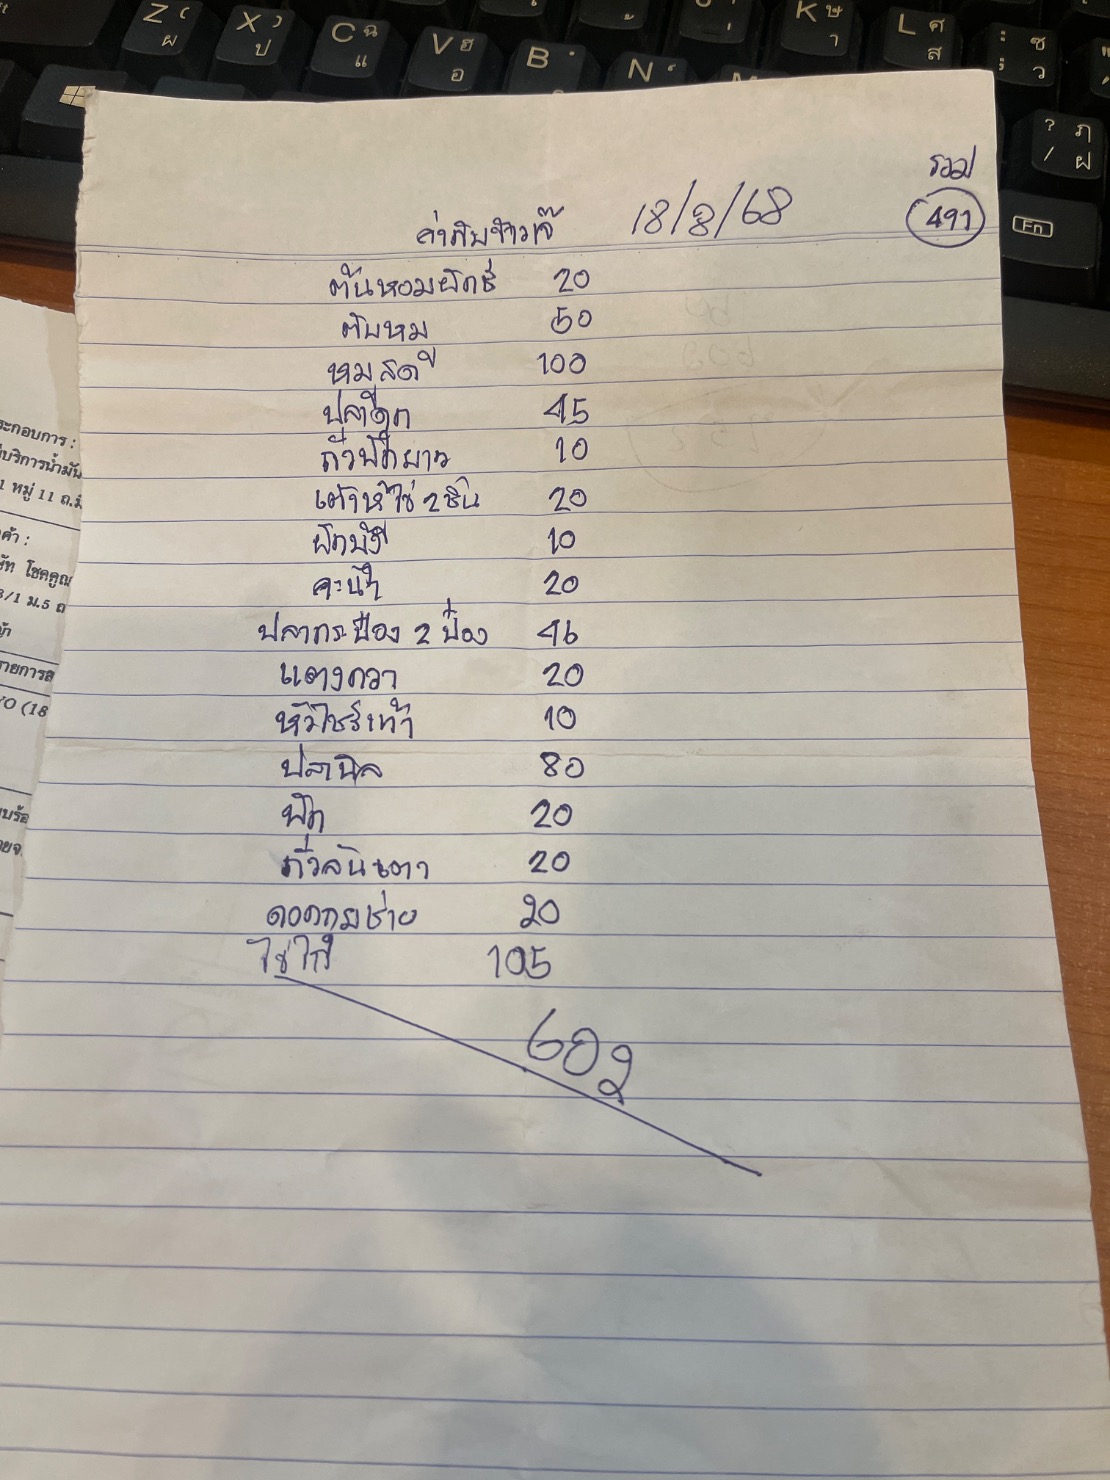 Z ผ
X ป
C ฉ แ
V ฮ อ
B
N
K ษ า
L ศ ส
: ซ
; ว
? ฦ
/ ฝ
Fn
รวม
491
18/8/68
ต้นหอมผักชี 20
ตับหมู 50
หมูสด 100
ปลาดุก 45
ถั่วฝักยาว 10
เต้าหู้ไข่ 2 ชิ้น 20
ผักบุ้ง 10
คะน้า 20
ปลากระป๋อง 2 ป๋อง 46
แตงกวา 20
หัวไชร์เท้า 10
ปลานิล 80
ฟัก 20
ถั่วลันเตา 20
ดอกกุยช่าย 20
ไข่ไก่ 105
602
ระกอบการ :
บริการน้ำมัน
1 หมู่ 11 ถ.
ค้า :
โชคคูณ
3/1 ม.5 ถ
ายการส
O (18